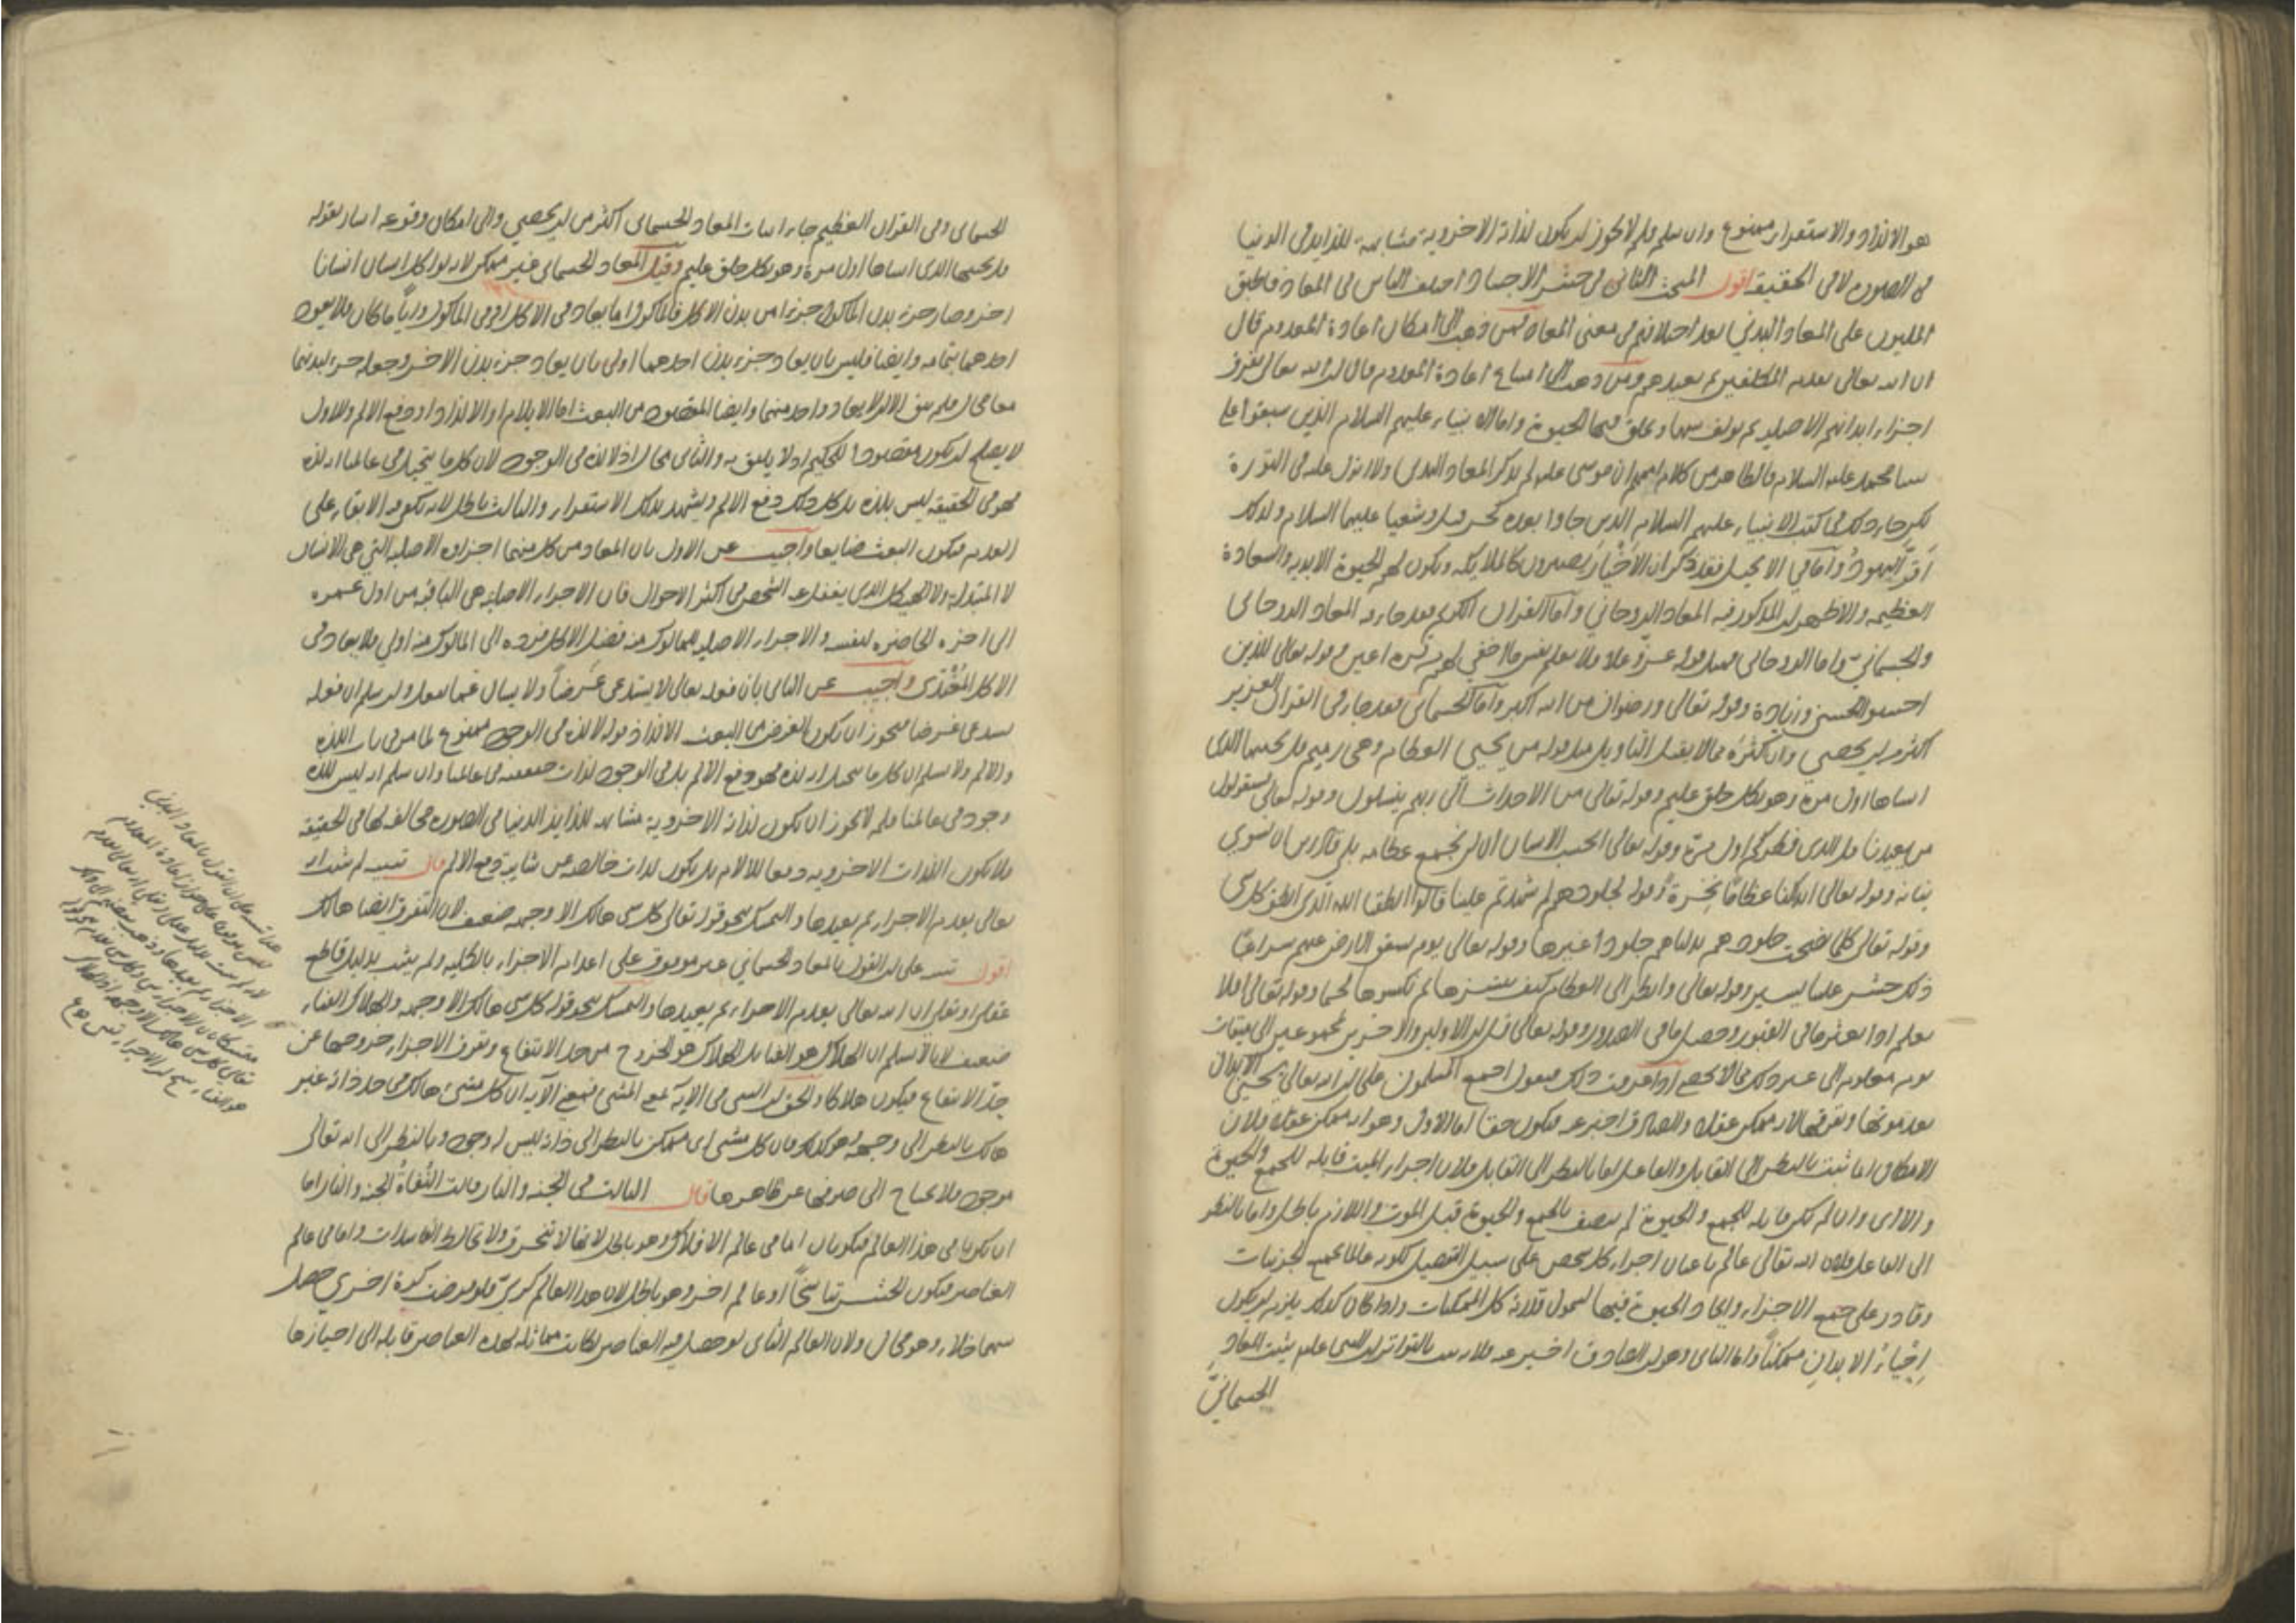 هو الالذاذ والاستقرار ممنوع وان سلم فلم لا يجوز ان يكون لذاته الاخروية مشابهة للذايذ في الدنيا
في الصورة لا في الحقيقة اقول المبحث الثاني في حشر الاجساد اختلف الناس في المعاد فاطبق
المليون على المعاد البدني بعد اختلافهم في معنى المعاد فمن ذهب الى امكان اعادة المعدوم قال
ان الله تعالى يعدم المكلفين ثم يعيدهم ومن ذهب الى امتناع اعادة المعدوم قال ان الله تعالى يفرق
اجزاء ابدانهم الاصلية ثم يولف بينها ويخلق فيها الحيوة واما الانبياء عليهم السلام الذين سبقوا على
نبينا محمد عليه السلام فالظاهر من كلام اممهم ان موسى عليه لم يذكر المعاد البدني ولا انزل عليه في التورة
لكن جاء ذلك في كتب الانبياء عليهم السلام الذين جاوا بعده كحزقيل وشعيا عليهما السلام ولذلك
اقر اليهود به واما في الانجيل فقد ذكر ان الاخيار يصيرون كالملايكة ويكون لهم الحيوة الابدية والسعادة
العظيمة والاظهر ان المذكور فيه المعاد الروحاني واما القران الكريم فقد جاء فيه المعاد الروحاني
والجسماني واما الروحاني فمثل قوله عز وعلا فلا تعلم نفس ما اخفي لهم من قرة اعين وقوله تعالى للذين
احسنوا الحسنى وزيادة وقوله تعالى ورضوان من الله اكبر واما الجسماني فقد جاء في القران العزيز
اكثر من ان يحصى وان اكثره مما لا يقبل التاويل مثل قوله من يحيي العظام وهي رميم قل يحييها الذي
انشاها اول مرة وهو بكل خلق عليم وقوله تعالى من الاجداث الى ربهم ينسلون وقوله تعالى فسيقولون
من يعيدنا قل الذي فطركم اول مرة وقوله تعالى ايحسب الانسان ان لن نجمع عظامه بلى قادرين ان نسوي
بنانه وقوله تعالى ائذا كنا عظاما نخرة وقوله لجلودهم لم شهدتم علينا قالوا انطقنا الله الذي انطق كل شي
وقوله تعالى كلما نضجت جلودهم بدلناهم جلودا غيرها وقوله تعالى يوم تشقق الارض عنهم سراعا
ذلك حشر علينا يسير وقوله تعالى وانظر الى العظام كيف ننشزها ثم نكسوها لحما وقوله تعالى افلا
يعلم اذا بعثر ما في القبور وحصل ما في الصدور وقوله تعالى قل ان الاولين والاخرين لمجموعون الى ميقات
يوم معلوم الى غير ذلك مما لا يحصى اذا عرفت ذلك فنقول اجمع المسلمون على ان الله تعالى يحيي الابدان
بعد موتها وتفرقها لانه ممكن عقلا والصادق اخبر عنه فيكون حقا اما الاول وهو انه ممكن عقلا فلان
الامكان انما ثبت بالنظر الى القابل والفاعل اما بالنظر الى القابل فلان اجزاء الميت قابلة للجمع والحيوة
والا اي وان لم يكن قابلة للجمع والحيوة لم يتصف بالجمع والحيوة قبل الموت واللازم باطل واما بالنظر
الى الفاعل فلان الله تعالى عالم باعيان اجزاء كل شخص على سبيل التفصيل لكونه عالما بجميع الجزئيات
وقادر على جمع الاجزاء وايجاد الحيوة فيها لشمول قدرته كل الممكنات واذا كان كذلك يلزم ان يكون
احياء الابدان ممكنا واما الثاني وهو ان الصادق اخبر عنه فلانه ثبت بالتواتر ان النبي عليه يثبت المعاد
الجسماني
الجسماني وفي القران العظيم جاء اثبات المعاد الجسماني اكثر من ان يحصى والى امكان وقوعه اشار بقوله
قل يحييها الذي انشاها اول مرة وهو بكل خلق عليم وقيل المعاد الجسماني غير ممكن لانه لو اكل انسان انسانا
اخر وصار جزء بدن الماكول جزءا من بدن الاكل فالماكول اما يعاد في الاكل او في الماكول وايا ما كان فلا يعود
احدهما بتمامه وايضا فليس بان يعاد جزء بدن احدهما اولى بان يعاد جزء بدن الاخر وجعله جزء لبدنهما
معا محال فلم يبق الا ان لا يعاد واحد منهما وايضا المقصود من البعث اما الايلام او الالذاذ او دفع الالم والاول
لا يصلح ان يكون مقصودا للحكيم اذ لا يليق به والثاني محال اذ لا لذة في الوجود لان كل ما يتخيل في عالمنا انه لذة
فهو في الحقيقة ليس بلذة بل كل ذلك دفع الالم ويشهد بذلك الاستقراء والثالث باطل لانه يكفي فيه الابقاء على
العدم فيكون البعث ضايعا واجيب عن الاول بان المعاد من كل منهما اجزاوه الاصلية التي هي الانسان
لا المتبدلة ولا الهيكل الذي يغفل عنه الشخص في اكثر الاحوال فان الاجزاء الاصلية هي الباقية من اول عمره
الى اخره الحاضرة لنفسه والاجزاء الاصلية للماكول منه فضل الاكل فرده الى الماكول منه اولى فلا يعاد في
الاكل المغتذى واجيب عن الثاني بان فعله تعالى لا يستدعي غرضا ولا يسال عما يفعل وان سلم ان فعله
يستدعي غرضا فيجوز ان يكون الغرض من البعث الالذاذ قوله لا لذة في الوجود ممنوع لما مر في باب اللذة
والالم ولا نسلم ان كل ما يتخيل انه لذة فهو دفع الالم بل في الوجود لذات حقيقية في عالمنا وان سلم انه ليس للذة
وجود في عالمنا فلم لا يجوز ان تكون لذاته الاخروية مشابهة للذايذ الدنيا في الصورة مخالفة لها في الحقيقة
فلا يكون اللذات الاخروية دفعا للالام بل يكون لذات خالصة عن شايبة دفع الالم قال تنبيه لم يثبت انه
تعالى يعدم الاجزاء ثم يعيدها والتمسك بنحو قوله تعالى كل شي هالك الا وجهه ضعيف لان التفرق ايضا هالك
اقول تنبيه على ان القول بالمعاد الجسماني غير موقوف على اعدام الاجزاء بالكلية ولم يثبت بدليل قاطع
عقلي او نقلي ان الله تعالى يعدم الاجزاء ثم يعيدها والتمسك بنحو قوله كل شي هالك الا وجهه والهلاك الفناء
ضعيف لانا لا نسلم ان الهلاك هو الفناء بل الهلاك هو الخروج من حد الانتفاع وتفرق الاجزاء خروجها عن
حد الانتفاع فيكون هلاكا والحق ان الشي في الاية بمعنى المشي فمعنى الاية ان كل مشيء هالك في حد ذاته غير
هالك بالنظر الى وجهه وهو كذلك فان كل مشيء اي ممكن بالنظر الى ذاته ليس له وجود وبالنظر الى الله تعالى
موجود فلا يحتاج الى صرفها عن ظاهرها قال الثالث في الجنة والنار قالت النفاة الجنة والنار اما
ان يكونا في هذا العالم فيكونان اما في عالم الافلاك وهو باطل لانها لا تنخرق ولا تخالط الفاسدات واما في عالم
العناصر فيكون الحشر تناسخا او عالم اخر وهو باطل لان هذا العالم كري فلو فرضت كرة اخرى حصل
بينهما خلاء وهو محال ولان العالم الثاني لو حصل فيه العناصر لكانت مماثلة لهذه العناصر قابلة الى احيازها